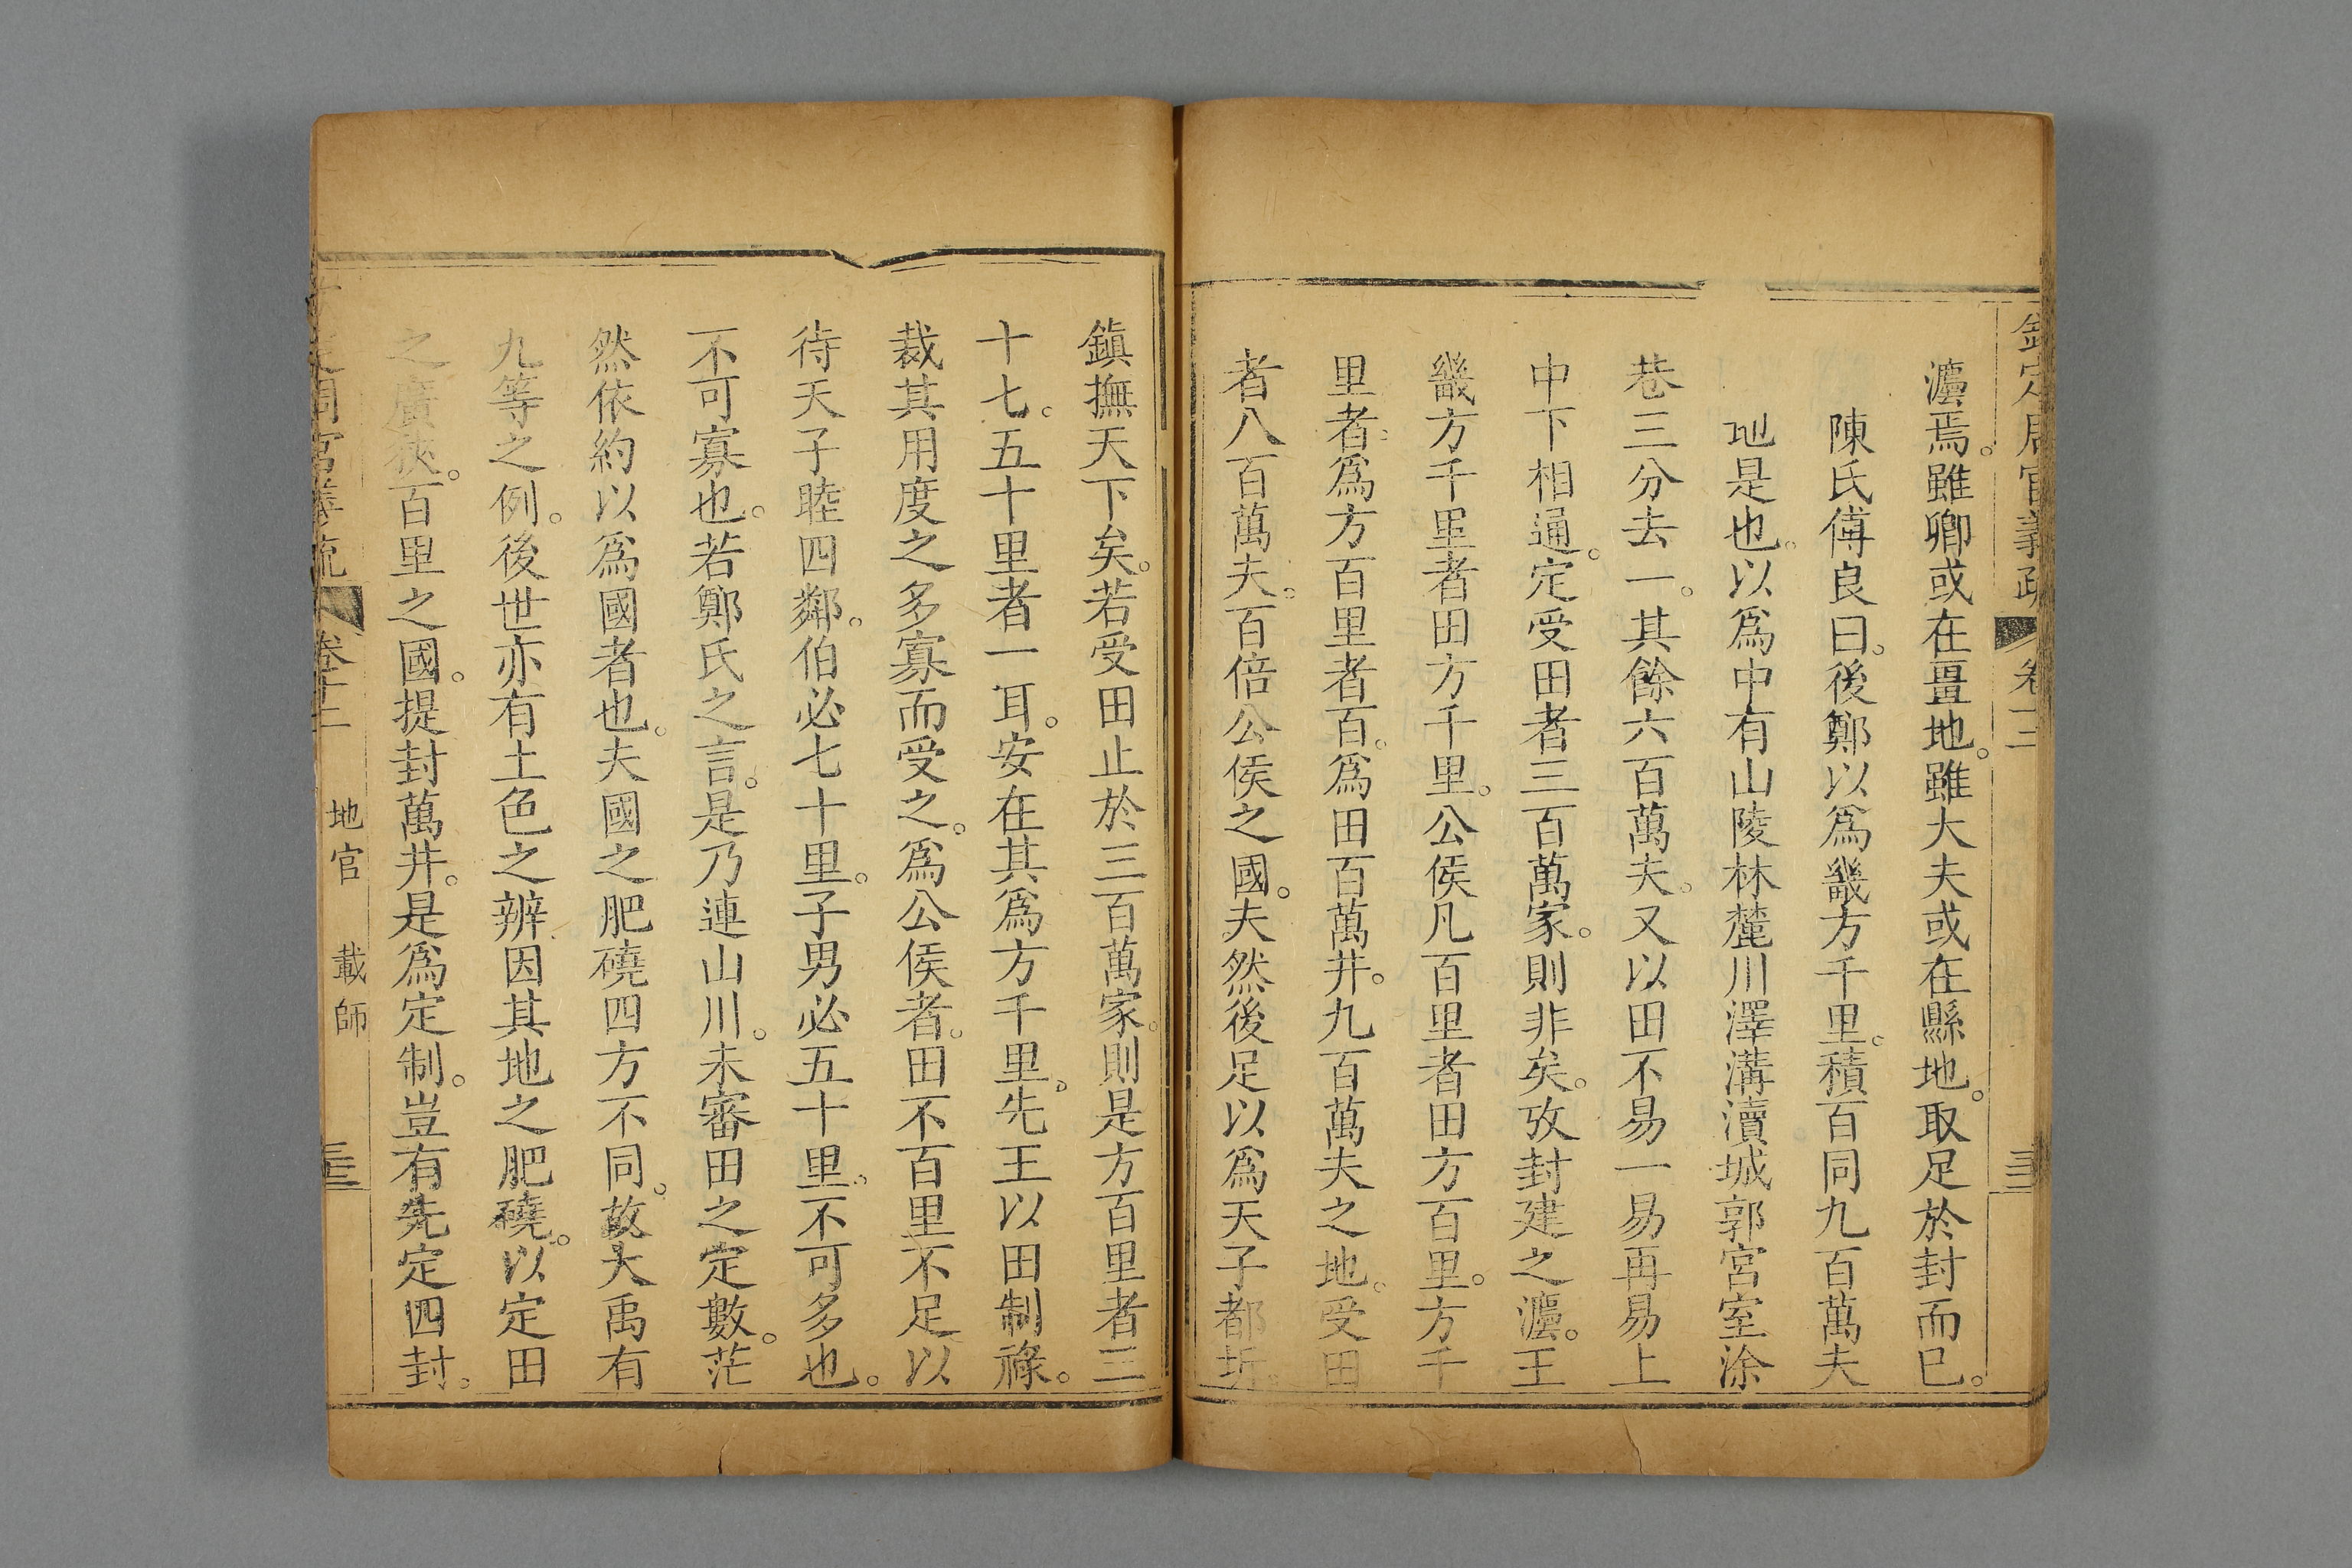 灋焉。雖卿或在畺地。雖大夫或在縣地。取足於封而已。
陳氏傅良曰。後鄭以爲畿方千里。積百同九百萬夫
地是也。以爲中有山陵林麓川澤溝瀆城郭宮室涂
巷三分去一。其餘六百萬夫。又以田不易一易再易上
中下相通。定受田者三百萬家。則非矣。攷封建之灋。王
畿方千里者田方千里。公侯凡百里者田方百里。方千
里者。爲方百里者百。爲田百萬井。九百萬夫之地。受田
者八百萬夫。百倍公侯之國。夫然後足以爲天子都圻。
鎮撫天下矣。若受田止於三百萬家。則是方百里者三
十七。五十里者一耳。安在其爲方千里。先王以田制祿。
裁其用度之多寡而受之。爲公侯者。田不百里不足以
待天子睦四鄰。伯必七十里。子男必五十里。不可多也。
不可寡也。若鄭氏之言。是乃連山川。未審田之定數。茫
然依約以爲國者也。夫國之肥磽四方不同。故大禹有
九等之例。後世亦有土色之辨因其地之肥磽。以定田
之廣狹。百里之國。提封萬井。是爲定制。豈有先定四封。
欽定周官義疏 卷十二
周官義疏 卷十二 地官 載師 三